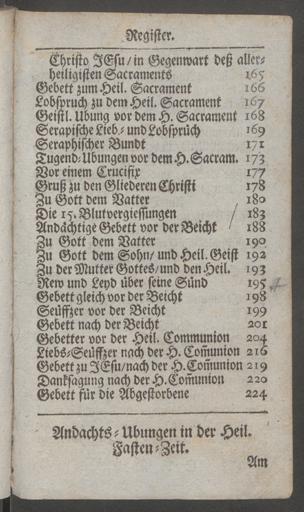 Register.
Christo JEsu / in Gegenwart deß aller-
heiligisten Sacraments 165
Gebett zum Heil. Sacrament 166
Lobspruch zu dem Heil. Sacrament 167
Geistl. Ubung vor dem H. Sacrament 168
Serapische Lieb- und Lobsprüch 169
Seraphischer Bundt 171
Tugend-Ubungen vor dem H. Sacram. 173
Vor einem Crucifix 177
Gruß zu den Gliederen Christi 178
Zu Gott dem Vatter 180
Die 15. Blutvergiessungen / 183
Andächtige Gebett vor der Beicht 188
Zu Gott dem Vatter 190
Zu Gott dem Sohn / und Heil. Geist 192
Zu der Mutter Gottes / und den Heil. 193
Rew und Leyd über seine Sünd 195
Gebett gleich vor der Beicht 198
Seüffzer vor der Beicht 199
Gebett nach der Beicht 201
Gebetter vor der Heil. Communion 204
Liebs-Seüffzer nach der H. Com̃union 216
Gebett zu JEsu / nach der H. Com̃union 219
Dancksagung nach der H. Com̃union 220
Gebett für die Abgestorbene 224
Andachts-Ubungen in der Heil.
Fasten-Zeit.
Am